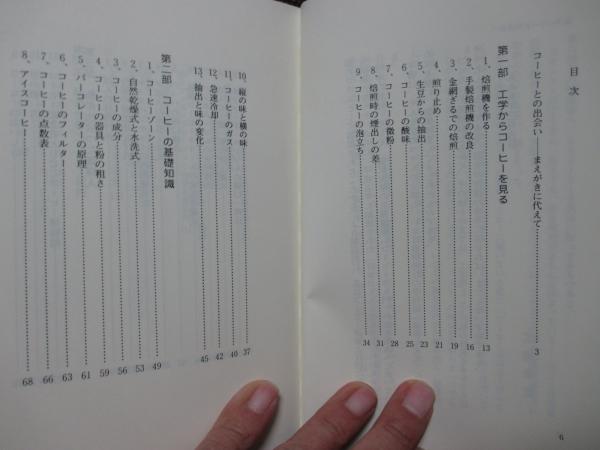 目次
コーヒーとの出会い――まえがきに代えて……3
第一部 工学からコーヒーを見る
1、焙煎機を作る……13
2、手製焙煎機の改良……16
3、金網ざるでの焙煎……19
4、煎り止め……21
5、生豆からの抽出……23
6、コーヒーの酸味……25
7、コーヒーの微粉……28
8、焙煎時の煙出しの差……31
9、コーヒーの泡立ち……34
6
10、縦の味と横の味……37
11、コーヒーのガス……40
12、急速冷却……42
13、抽出と味の変化……45
第二部 コーヒーの基礎知識
1、コーヒーゾーン……49
2、自然乾燥式と水洗式……53
3、コーヒーの成分……56
4、コーヒーの器具と粉の粗さ……59
5、パーコレーターの原理……61
6、コーヒーのフィルター……63
7、コーヒーの点数表……66
8、アイスコーヒー……68